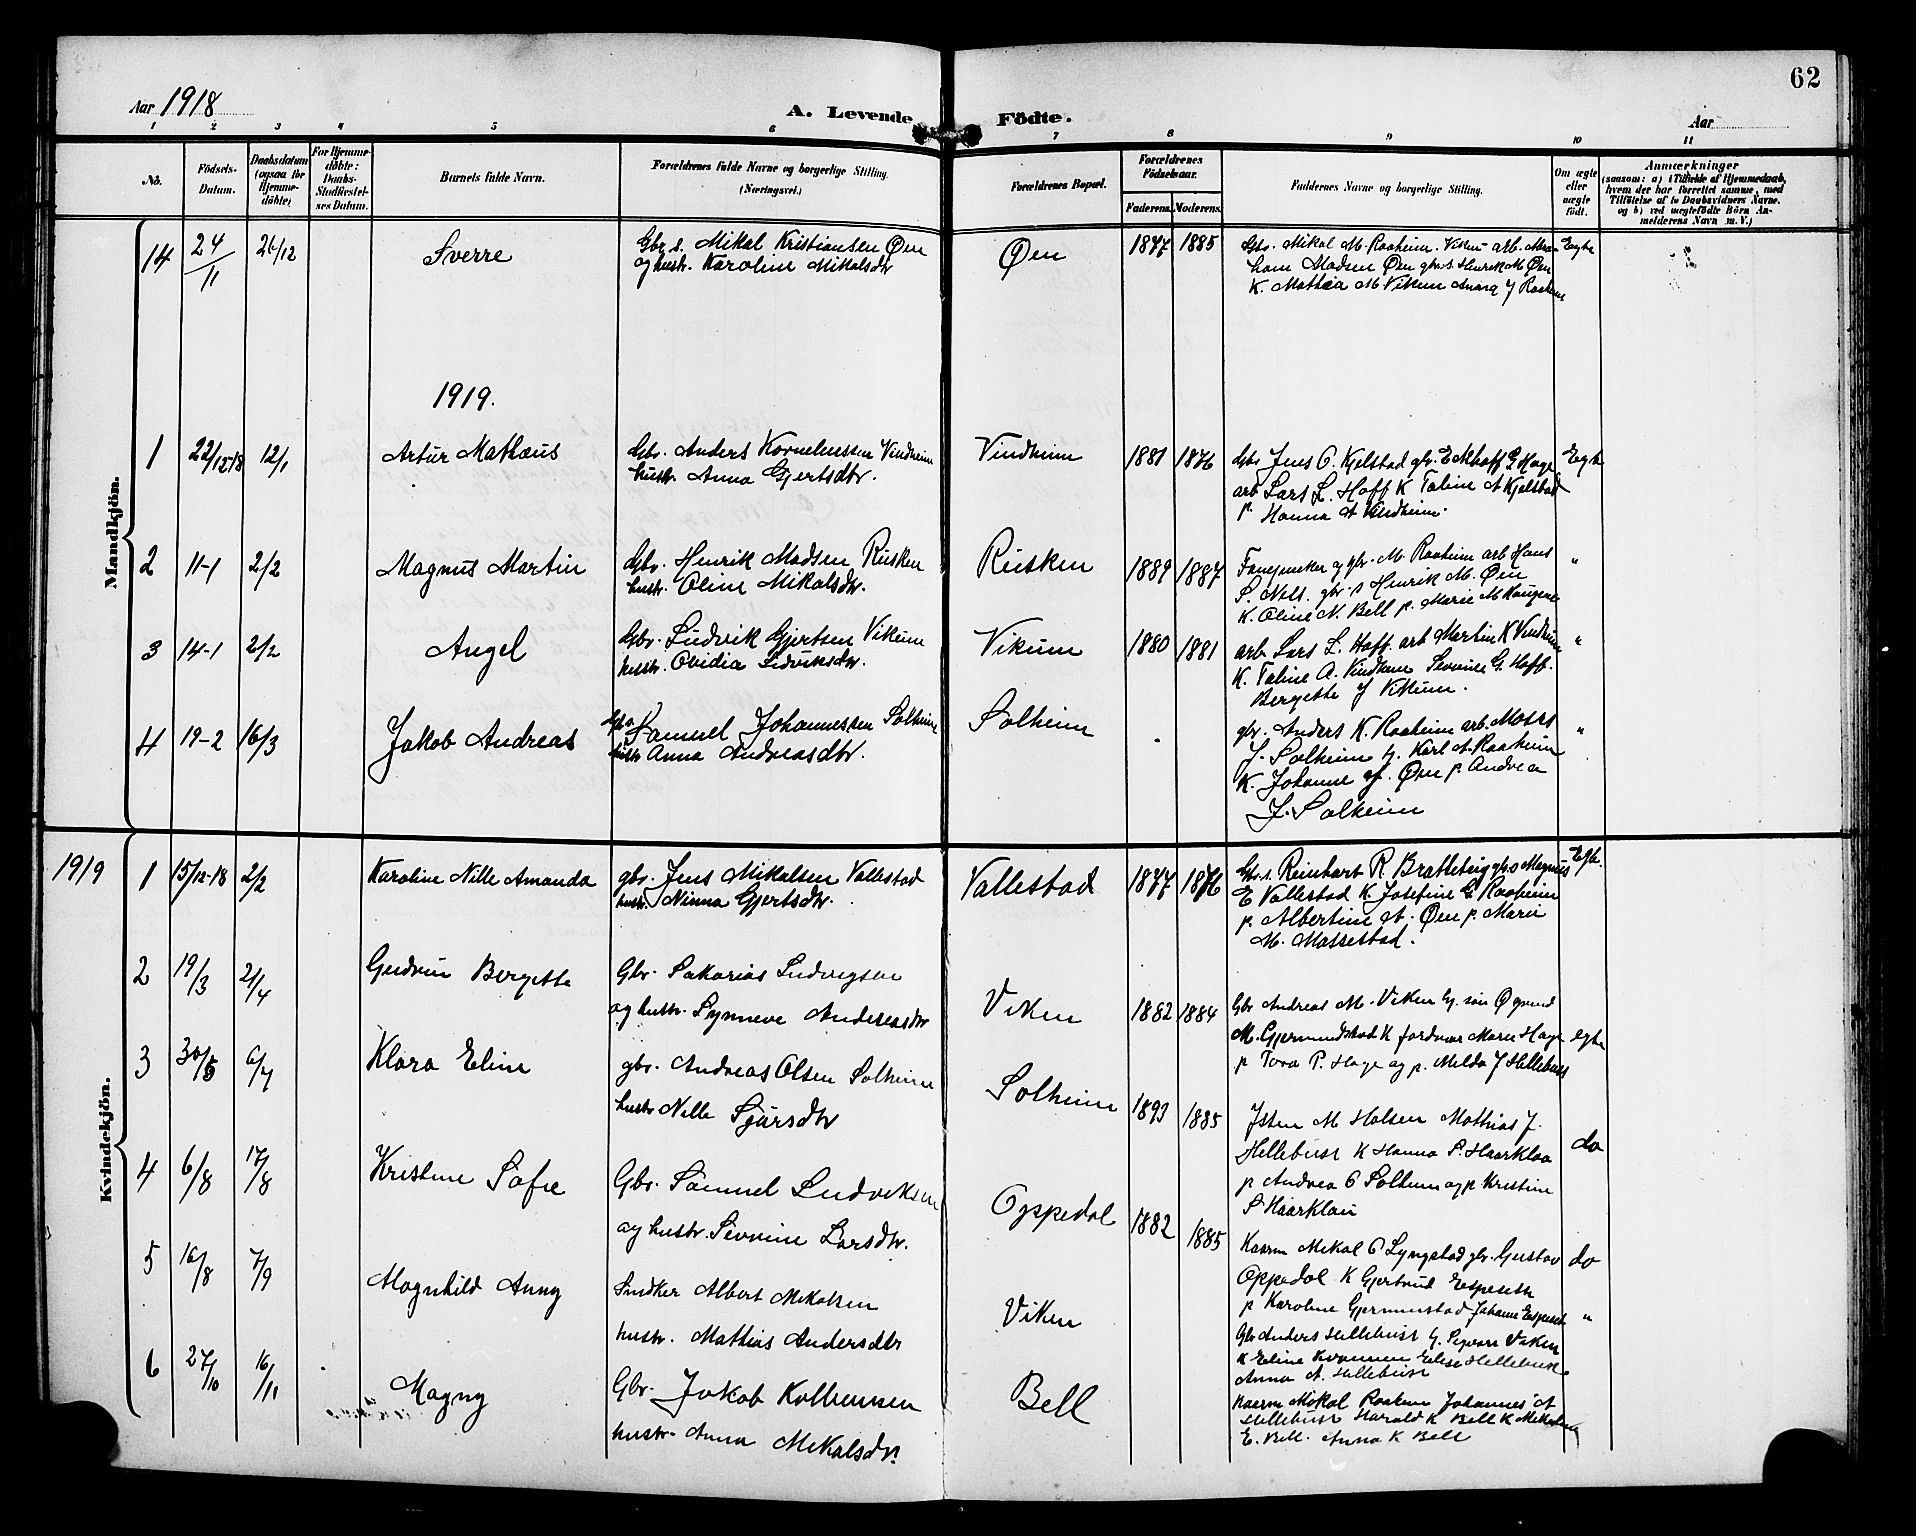 62
Aar 1918
A. Levende Födte.
Aar
1 2 3 4 5 6 7 8 9 10 11
No.
Födsels-Datum.
Daabsdatum (ogsaa for Hjemme-döbte)
For Hjemme-döbte: Daabs-Stadfæstel-ses Datum.
Barnets fulde Navn.
Forældrenes fulde Navne og borgerlige Stilling. (Næringsvei.)
Forældrenes Bopæl.
Forældrenes Födselsaar.
Faderens. Moderens.
Faddernes Navne og borgerlige Stilling.
Om ægte eller uægte födt.
Anmærkninger
(saasom: a) i Tilfælde af Hjemmedaab,
hvem der har forrettet samme, med
Tilföielse af to Daabsvidners Navne.
og b) ved uægtefödte Börn An-
melderens Navn m. V.)
Mandkjön.
14 24/11 26/12 Sverre
Gbr.s. Mikal Kristiansen Øen
og hustr. Karoline Mikalsdtr
Øen 1877 1885
Gbr. Mikal M. Raaheim. Viken arb.
Madsen Øen gbr.s Henrik M Øen
K. Mathea M Vikum J Raaheim
Egte
1919.
1 22/12-18 12/1 Artur Mathæus
Gbr. Anders Korneliussen Vindheim
hustr. Anna Gjertsdtr.
Vindheim 1881 1876
Gbr Jens O. Kjelstad gbr. Eckhoff G Hage
arb Lars L. Hoff K Taline A Kjelstad
p. Hanna A Vindheim.
Egte
2 11-1 2/2 Magnus Martin
Gbr. Henrik Madsen Rusken
hustr. Oline Mikalsdtr.
Rusken 1889 1887
og gbr. M. Raaheim arb Hans
S. Nils. gbr.s Henrik M. Øen
K. Oline N. Bell p. Marie M
"
3 14-1 2/2 Angel
Gbr. Ludvik Gjertsen Vikum
hustr. Ovidia Ludviksdtr.
Vikum 1880 1881
arb Lars L. Hoff. arb Martin K Vindheim
K. Taline A. Vindheim Severine G. Hoff.
Bergette J Vikum.
"
4 19-2 16/3 Jakob Andreas
Gbr. Samuel Johannessen Solheim
hustr Anna Andreasdtr.
Solheim
gbr. Anders K. Raaheim arb. Moses
J. Solheim g. Karl A. Raaheim
K. Johanne A. Øen p. Andrea
J. Solheim
"
Kvindekjön.
1919
1 15/12-18 2/2 Karoline Nille Amanda
gbr. Jens Mikalsen Vallestad
hustr. Ninna Gjertsdtr.
Vallestad 1877 1876
Gbr.s. Reinhart R Brattebug gbr.s Magnus
E Vallestad K Josefine G Raaheim
p. Albertine A. Øen p. Marie
M. Massestad.
Egte.
2 19/3 21/4 Gudrun Bergitte
Gbr. Sakarias Ludvigsen
og hustr. Synneve Andreasdtr
Viken 1882 1884
Gbr Andreas M. Viken g. søn Øyvind
M. Gjermundstad K Marie Hage
p Tora P. Hage og p. Melda J Hellebust
egte
3 30/5 6/7 Klara Eline
gbr. Andreas Olsen Solheim
hustr Nille Sjursdtr
Solheim 1893 1885
M Halsen Mathias J.
Hellebust K Hanna S. Haarklaa
p Andrea O Solheim og p. Kristine
S Haarklau
do
4 6/8 17/8 Kristine Sofie
Gbr. Samuel Ludviksen
og hustr. Severine Larsdtr.
Oppedal 1882 1885
Kaarm Mikal O Lyngstad gbr. Gustav
Oppedal K Gjertrud Espeseth
p Karoline Gjermunstad Johanne Espeseth
do
5 16/8 7/9 Magnhild Anny
Sndker Albert Mikalsen
hustr. Mathias Andersdtr
Viken
Gbr Anders Hellebust g. Sigvart Viken
K Eline Kvammen Elise Hellebust
Anna A. Hellebust
"
6 27/10 16/11 Magny
Gbr. Jakob Kolbensen
hustr. Anna Mikalsdtr.
Bell
Kaarm Mikal Raaheim Johannes A
Hellebust Harald K Bell K
E. Bell. Anna K Bell